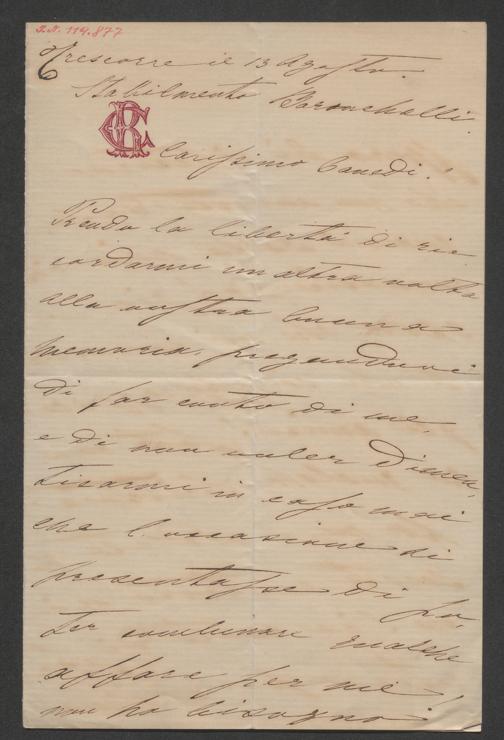 I.N. 119.877
Trescorre il 13 Agosto.
Stabilimento Baroncholli.
CR
Carissimo Canedi!
Prendo la libertà di ric
cordarmi un altra volta
alla vostra buona
memoria, pregandovi
di far conto di me,
e di non voler dimen,
ticarmi in caso mai
che l'occasione si
presentasse di po,
ter combinare qualche
affare per me!
non ho bisogno